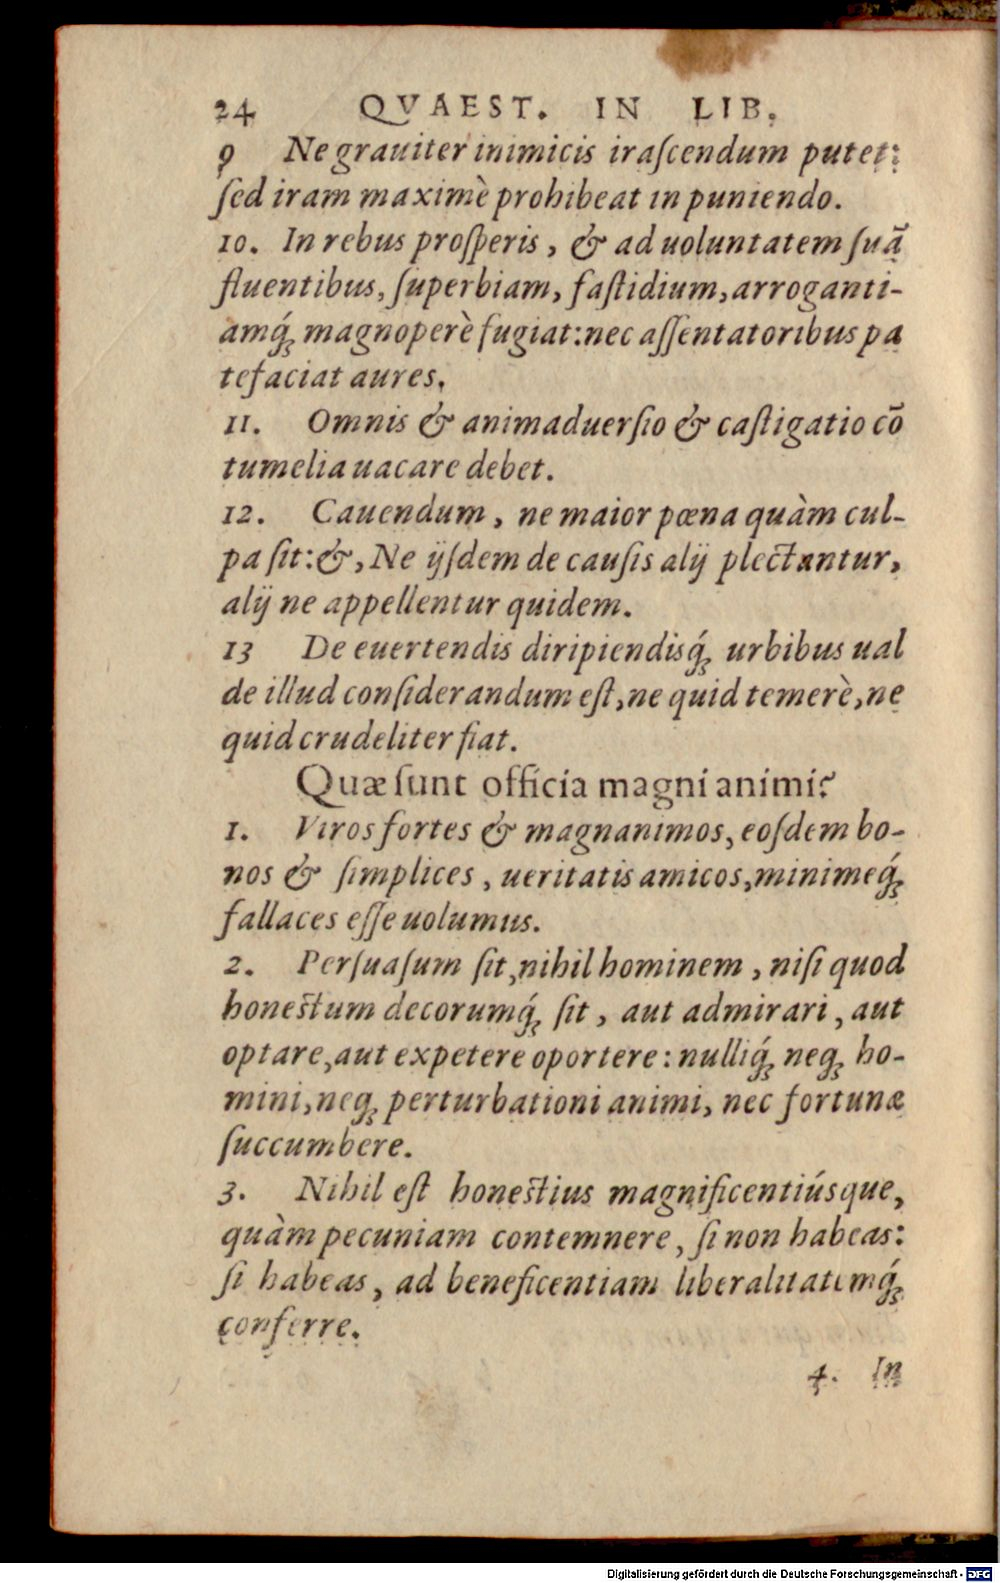 24 QVAEST. IN LIB.
9 Ne grauiter inimicis iraſcendum putet:
ſed iram maximè prohibeat in puniendo.
10. In rebus proſperis, & ad uoluntatem ſuā
fluentibus, ſuperbiam, faſtidium, arroganti-
amq́ꝫ magnoperè fugiat: nec aſſentatoribus pa
tefaciat aures.
11. Omnis & animaduerſio & caſtigatio cō
tumelia uacare debet.
12. Cauendum, ne maior pœna quàm cul-
pa ſit: &, Ne ijſdem de cauſis alij plectantur,
alij ne appellentur quidem.
13 De euertendis diripiendisq́ꝫ urbibus ual
de illud conſiderandum eſt, ne quid temerè, ne
quid crudeliter fiat.
Quæ ſunt officia magni animi?
1. Viros fortes & magnanimos, eoſdem bo-
nos & ſimplices, ueritatis amicos, minimeq́ꝫ
fallaces eſſe uolumus.
2. Perſuaſum ſit, nihil hominem, niſi quod
honestum decorumq́ꝫ ſit, aut admirari, aut
optare, aut expetere oportere: nulliq́ꝫ neqꝫ ho-
mini, neqꝫ perturbationi animi, nec fortunæ
ſuccumbere.
3. Nihil eſt honestius magnificentiúsque,
quàm pecuniam contemnere, ſi non habeas:
ſi habeas, ad beneficentiam liberalitatemq́ꝫ
conferre.
4. In
Digitalisierung gefördert durch die Deutsche Forschungsgemeinschaft - DFG